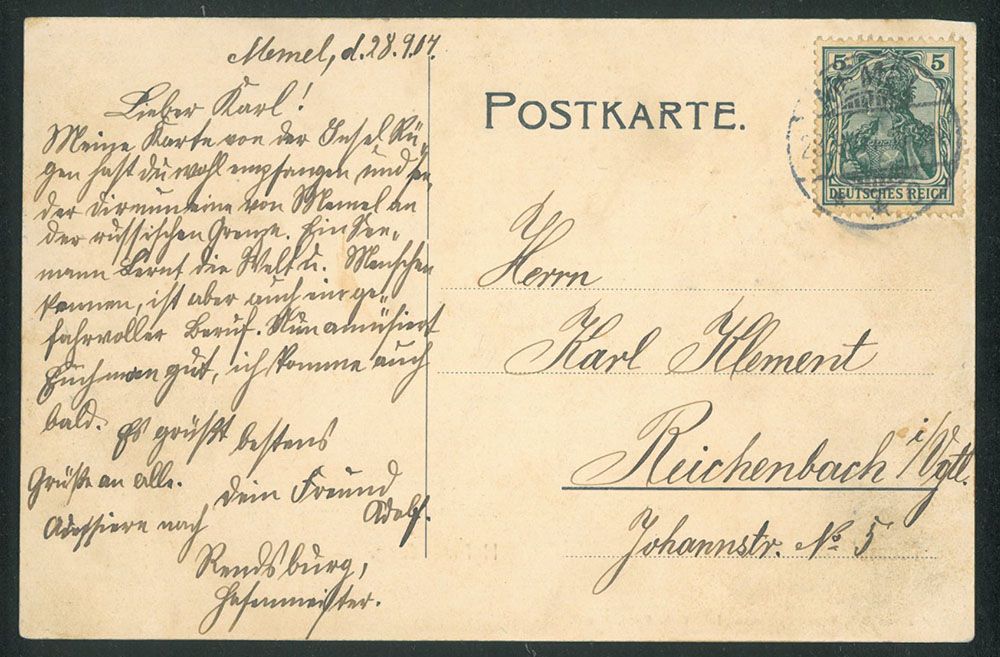 Memel, d. 28.9.07.
Lieber Karl!
Meine Karte von der Insel Rü-
gen hast du wohl empfangen und
der von Memel an
der russischen Grenze. Ein See-
mann lernt die Welt u. Menschen
kennen, ist aber auch ein ge-
fahrvoller Beruf. Nun amüsiert
Euch man gut, ich komme auch
bald.
Es grüßt bestens
Grüße an alle. Dein Freund
Adressiere nach Adolf.
Rendsburg,
Hafenmeister.
POSTKARTE.
5 5
DEUTSCHES REICH
Herrn
Karl Klement
Reichenbach i/Vgtl.
Johannstr. No 5